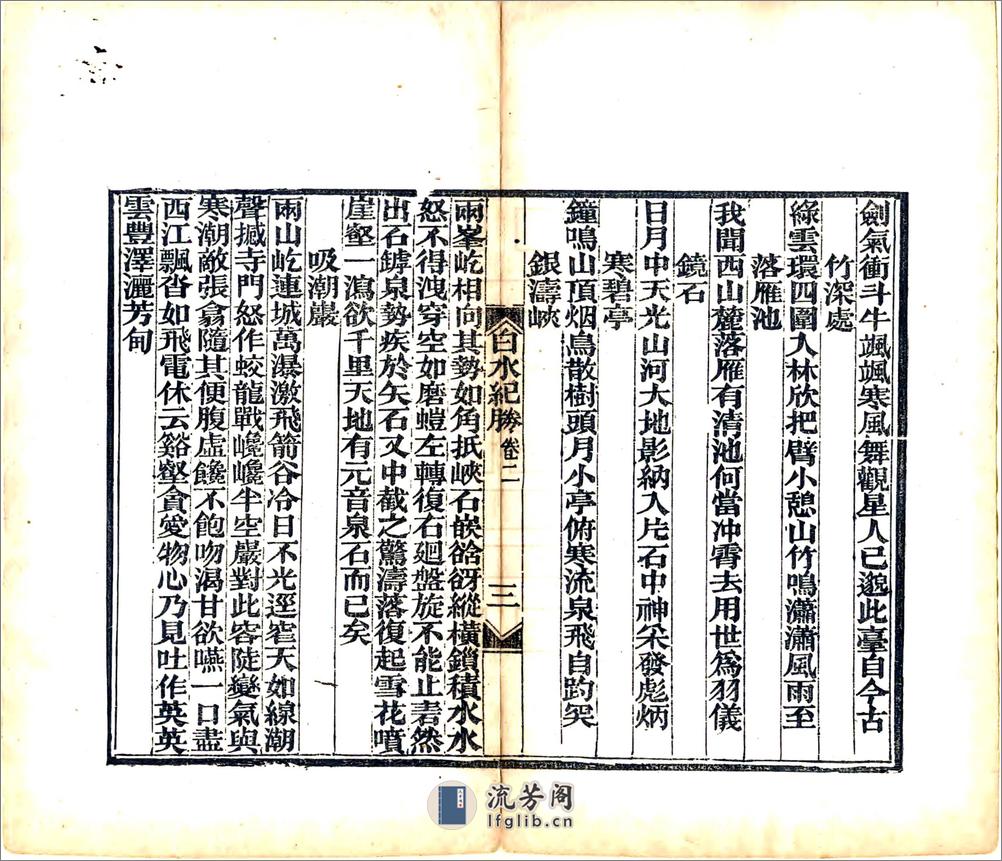 劍氣衝斗牛颯颯寒風舞觀星人已邈此臺自今古
竹深處
綠雲環四圍入林欣把臂小憩山竹鳴瀟瀟風雨至
落雁池
我聞西山麓落雁有清池何當冲霄去用世爲羽儀
鏡石
日月中天光山河大地影納入片石中神采發彪炳
寒碧亭
鐘鳴山頂烟鳥散樹頭月小亭俯寒流泉飛自趵突
銀濤峽
白水紀勝 卷二 三
兩峯屹相向其勢如角抵峽石嵌谽谺縱橫鎖積水水
怒不得洩穿空如磨螘左轉復右廻盤旋不能止砉然
出石罅泉勢疾於矢石又中截之驚濤落復起雪花噴
崖壑一瀉欲千里天地有元音泉石而已矣
吸潮巖
兩山屹連城萬瀑激飛箭谷冷日不光逕窄天如線潮
聲撼寺門怒作蛟龍戰巉巉半空巖對此容陡變氣與
寒潮敵張翕隨其便腹虛饞不飽吻渴甘欲嚥一口盡
西江飄沓如飛電休云谿壑貪愛物心乃見吐作英英
雲豐澤灑芳甸
流芳阁
lfglib.cn